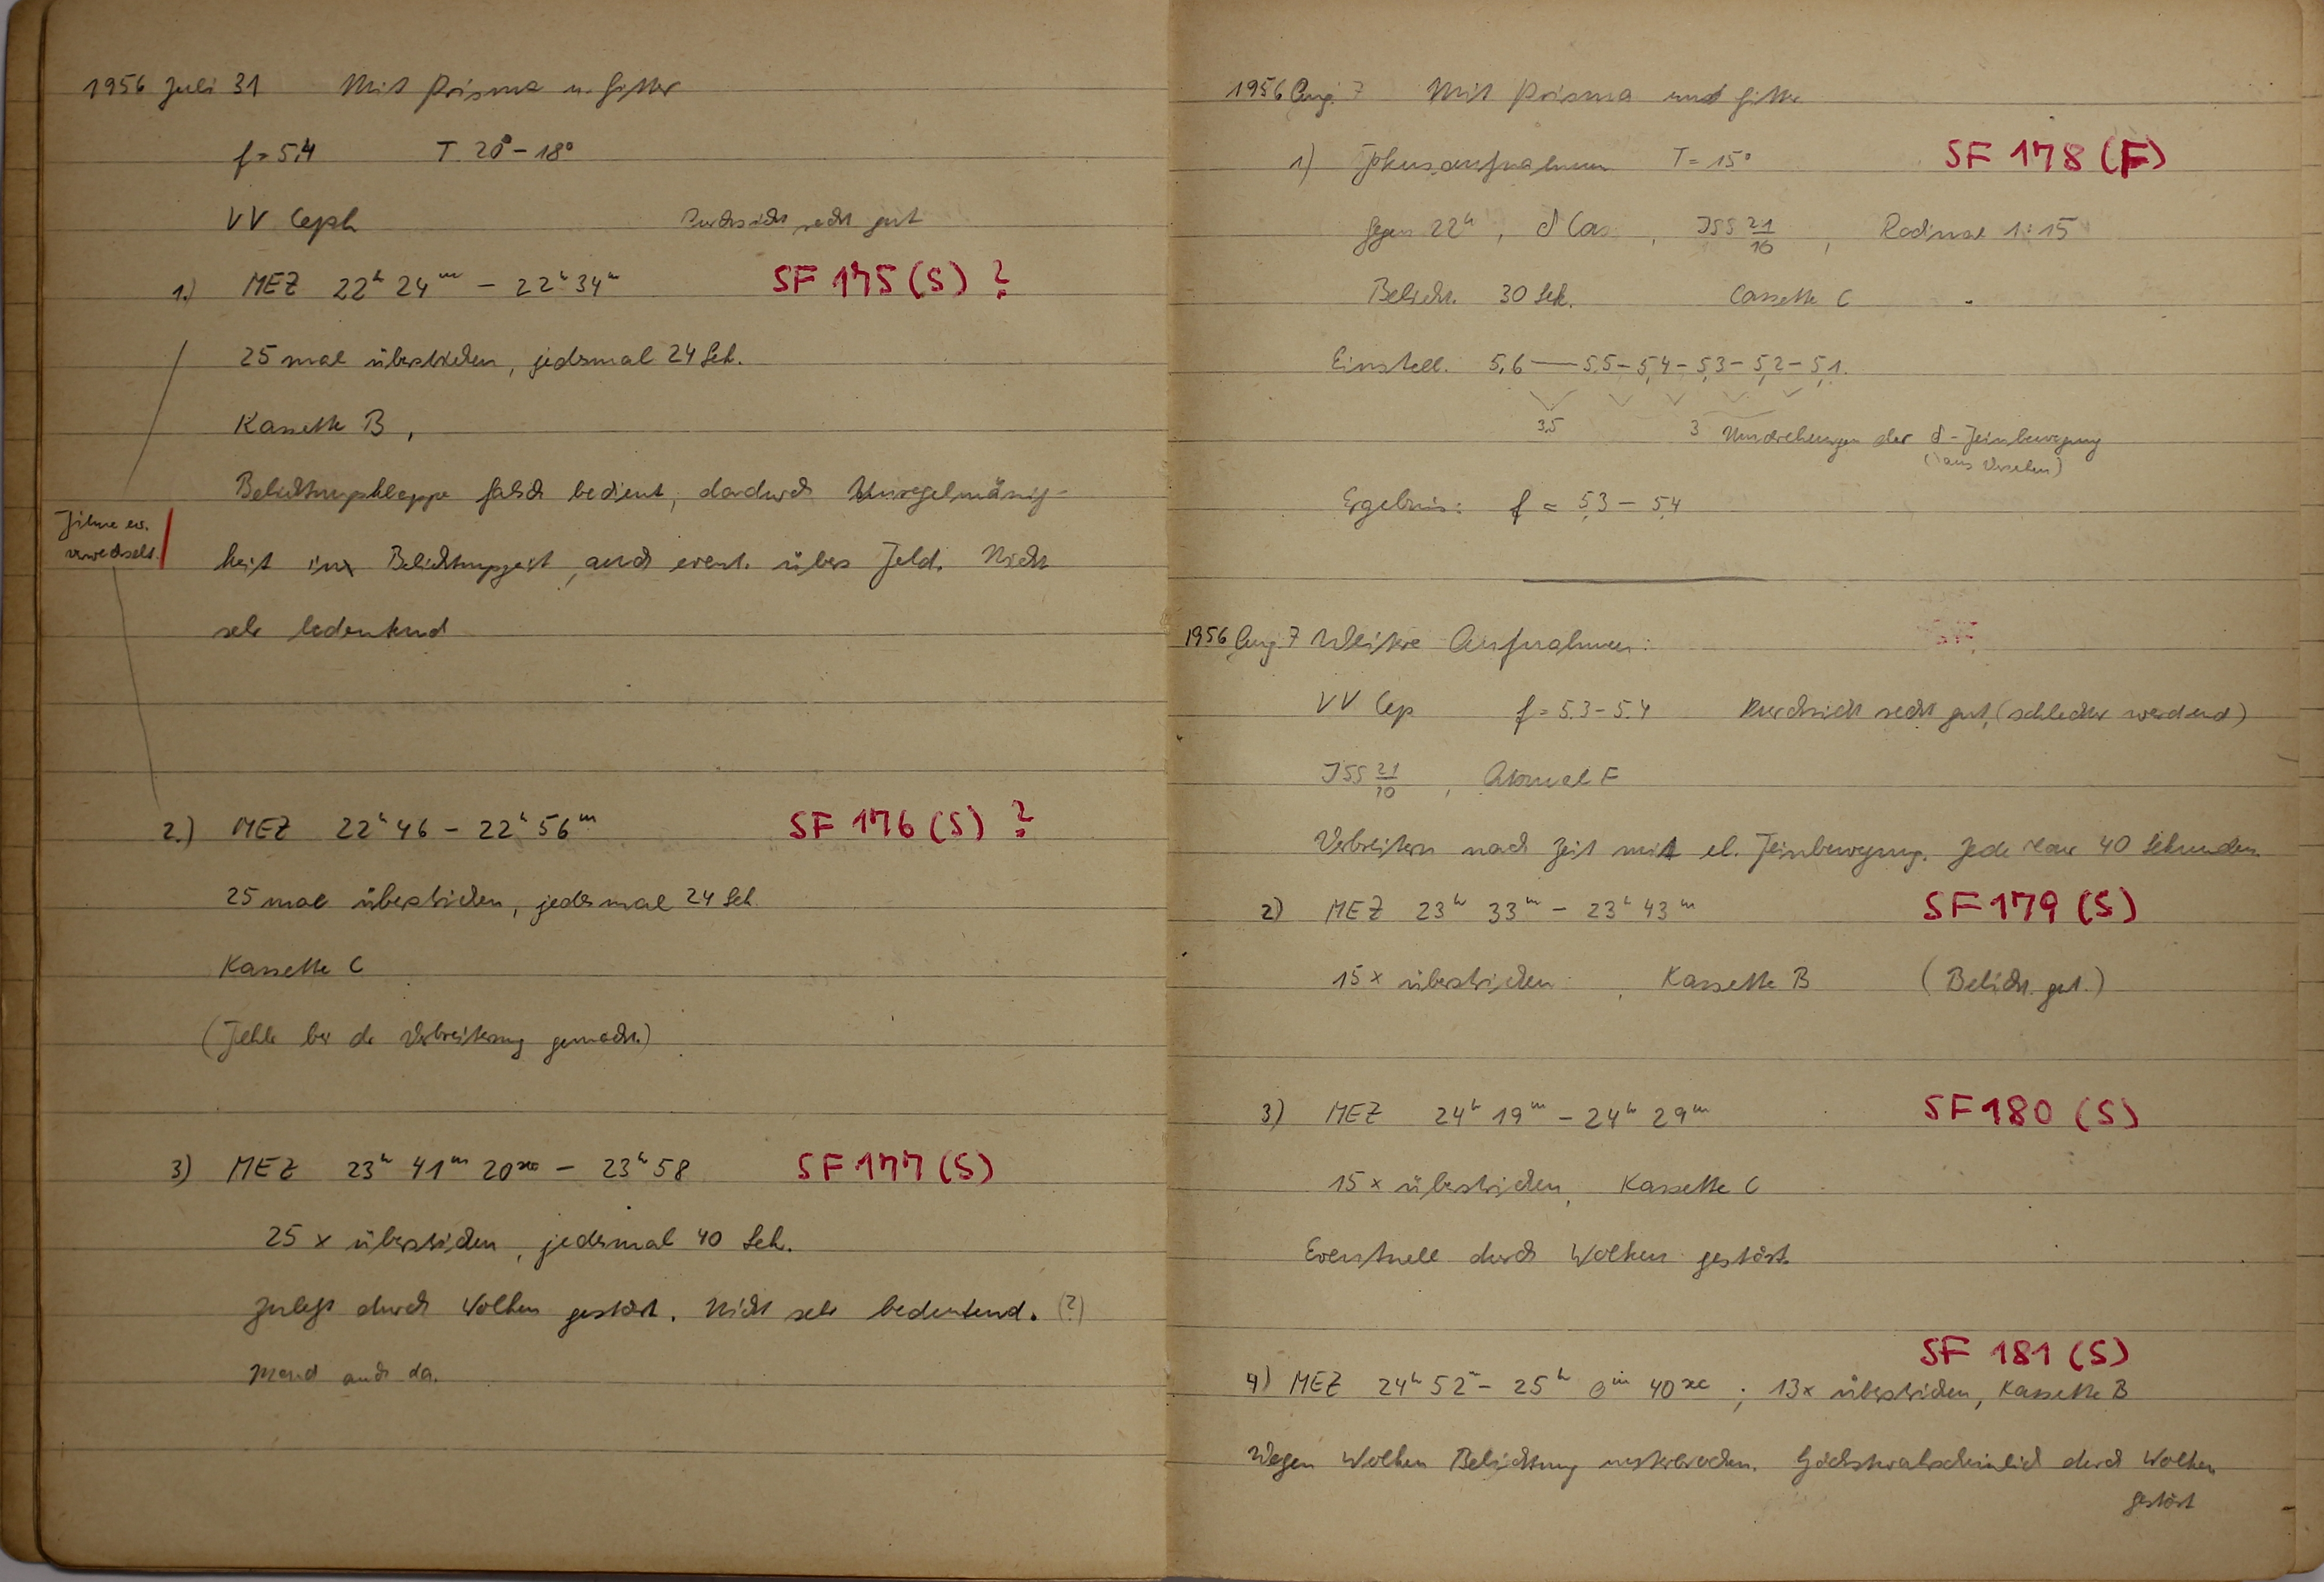 1956 Juli 31 Mit Prisma u. Gitter
f = 5,4 T 20° – 18°
VV Ceph Durchsicht recht gut
1.) MEZ 22ʰ 24ᵐ – 22ʰ 34ᵐ SF 175 (S) ?
25 mal überstrichen, jedesmal 24 Sek.
Kassette B,
Belichtungsklappe falsch bedient, dadurch Unregelmässig-
Filme ev.
verwechselt.
keit in Belichtungszeit, auch event. übers Feld. Nicht
sehr bedeutend
2.) MEZ 22ʰ 46 – 22ʰ 56ᵐ SF 176 (S) ?
25 mal überstrichen, jedesmal 24 Sek.
Kassette C
(Fehler bei der Verbreiterung gemacht.)
3) MEZ 23ʰ 41ᵐ 20ˢᵉᶜ – 23ʰ 58 SF 177 (S)
25 x überstrichen, jedesmal 40 Sek.
Zuletzt durch Wolken gestört. Nicht sehr bedeutend. (?)
Mond auch da.
1956 Aug. 7 Mit Prisma und Gitter
1) Fokusaufnahmen T = 15° SF 178 (F)
Gegen 22ʰ, δ Cas, ISS 21/10, Rodinal 1:15
Belicht. 30 Sek. Cassette C
Einstell. 5,6 — 5,5 – 5,4 – 5,3 – 5,2 – 5,1.
3,5 3 Umdrehungen der δ-Feinbewegung
(aus Versehen)
Ergebnis: f = 5,3 – 5,4
1956 Aug. 7 Weitere Aufnahmen:
VV Cep f = 5.3 – 5.4 Durchsicht recht gut, (schlechter werdend)
ISS 21/10, Atomal F
Verbreitern nach Zeit mit el. Feinbewegung. Jede 40 Sekunden
2) MEZ 23ʰ 33ᵐ – 23ʰ 43ᵐ SF 179 (S)
15 x überstrichen, Kassette B (Belicht. gut.)
3) MEZ 24ʰ 19ᵐ – 24ʰ 29ᵐ SF 180 (S)
15 x überstrichen, Kassette C
Eventuell durch Wolken gestört.
SF 181 (S)
4) MEZ 24ʰ 52ᵐ – 25ʰ 0ᵐ 40ˢᵉᶜ ; 13 x überstrichen, Kassette B
Wegen Wolken Belichtung unterbrochen. Höchstwahrscheinlich durch Wolken
gestört